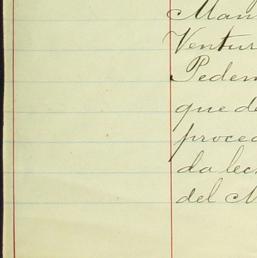 Man
Ventur
Peden
que de
proced
da lec
del M